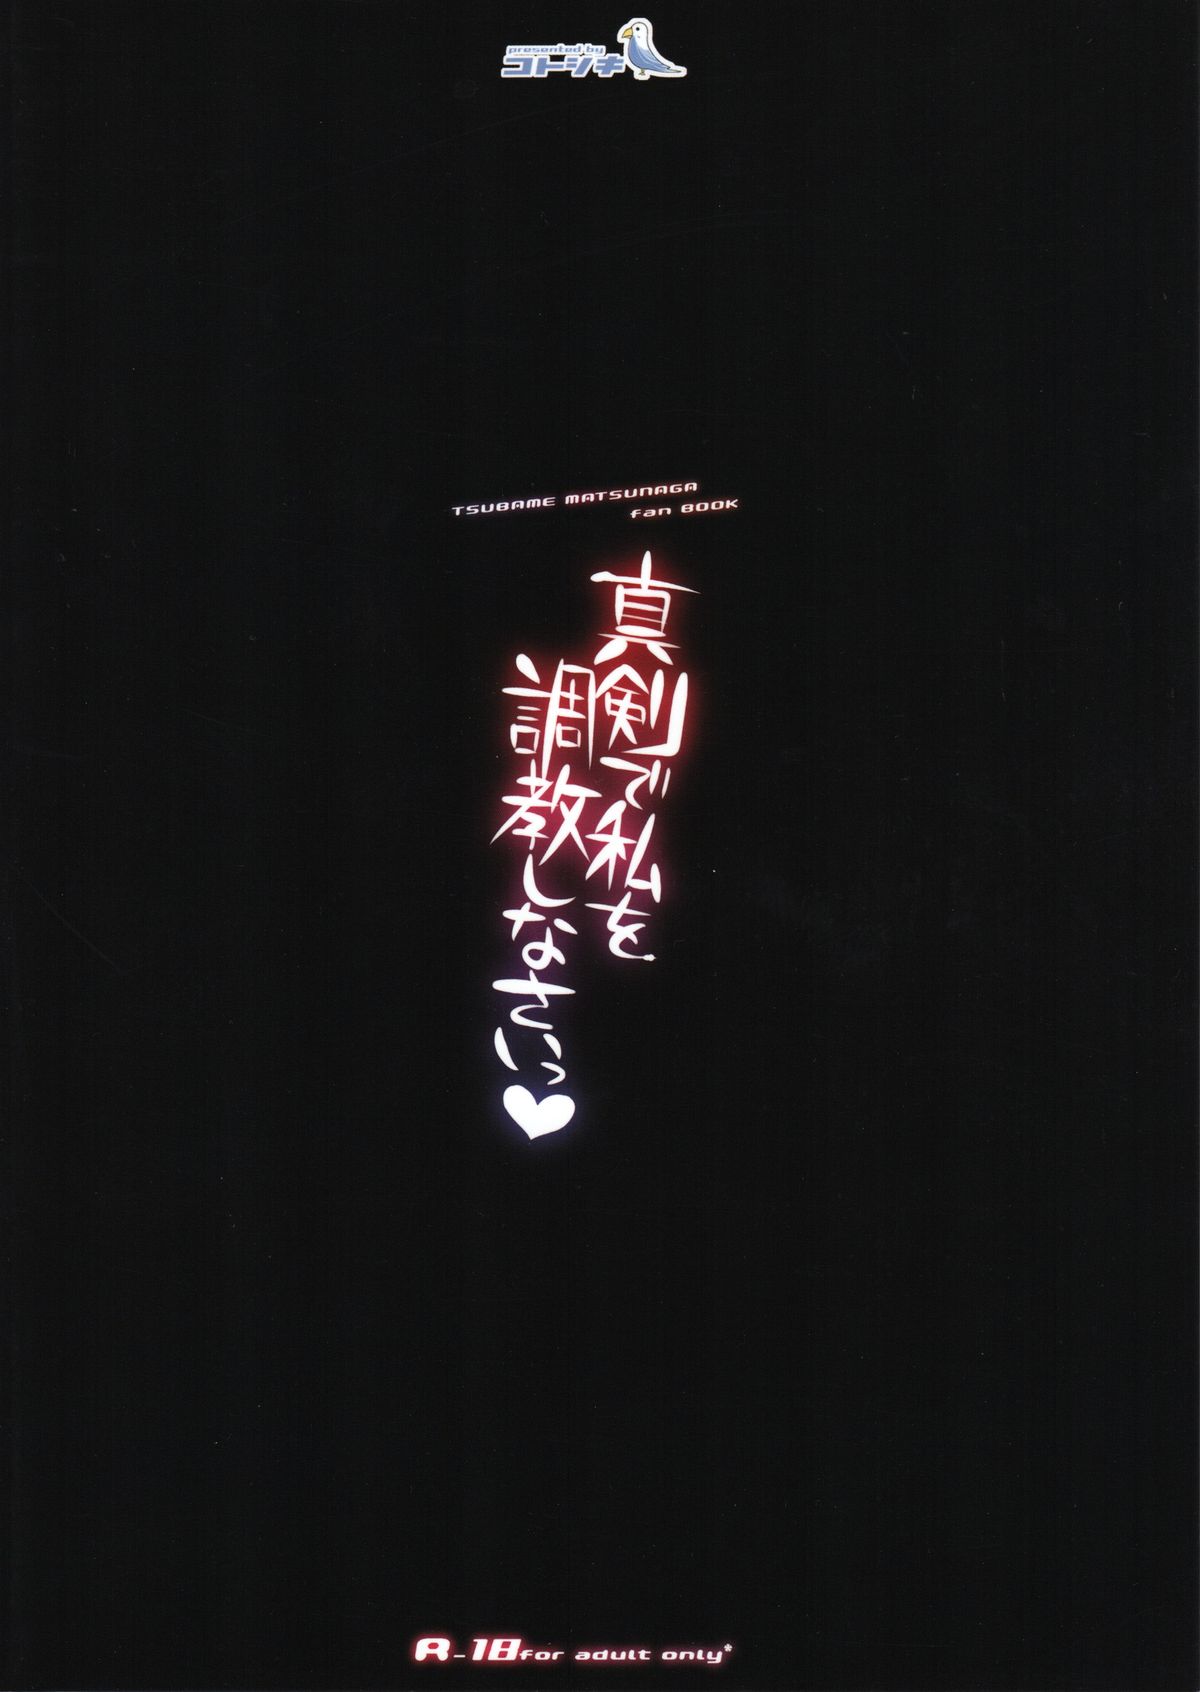 presented by
コトシキ
TSUBAME MATSUNAGA
fan BOOK
真剣で私を
調教しなさいっ♥
R-18 for adult only*